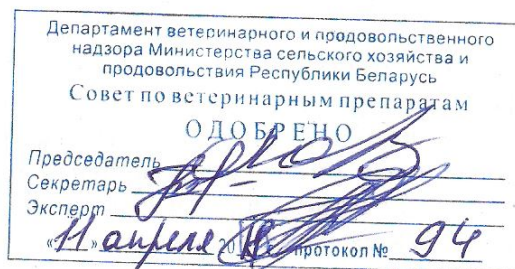 Департамент ветеринарного и продовольственного
надзора Министерства сельского хозяйства и
продовольствия Республики Беларусь
Совет по ветеринарным препаратам
ОДОБРЕНО
Председатель
Секретарь
Эксперт
«11» апреля 20 протокол № 94